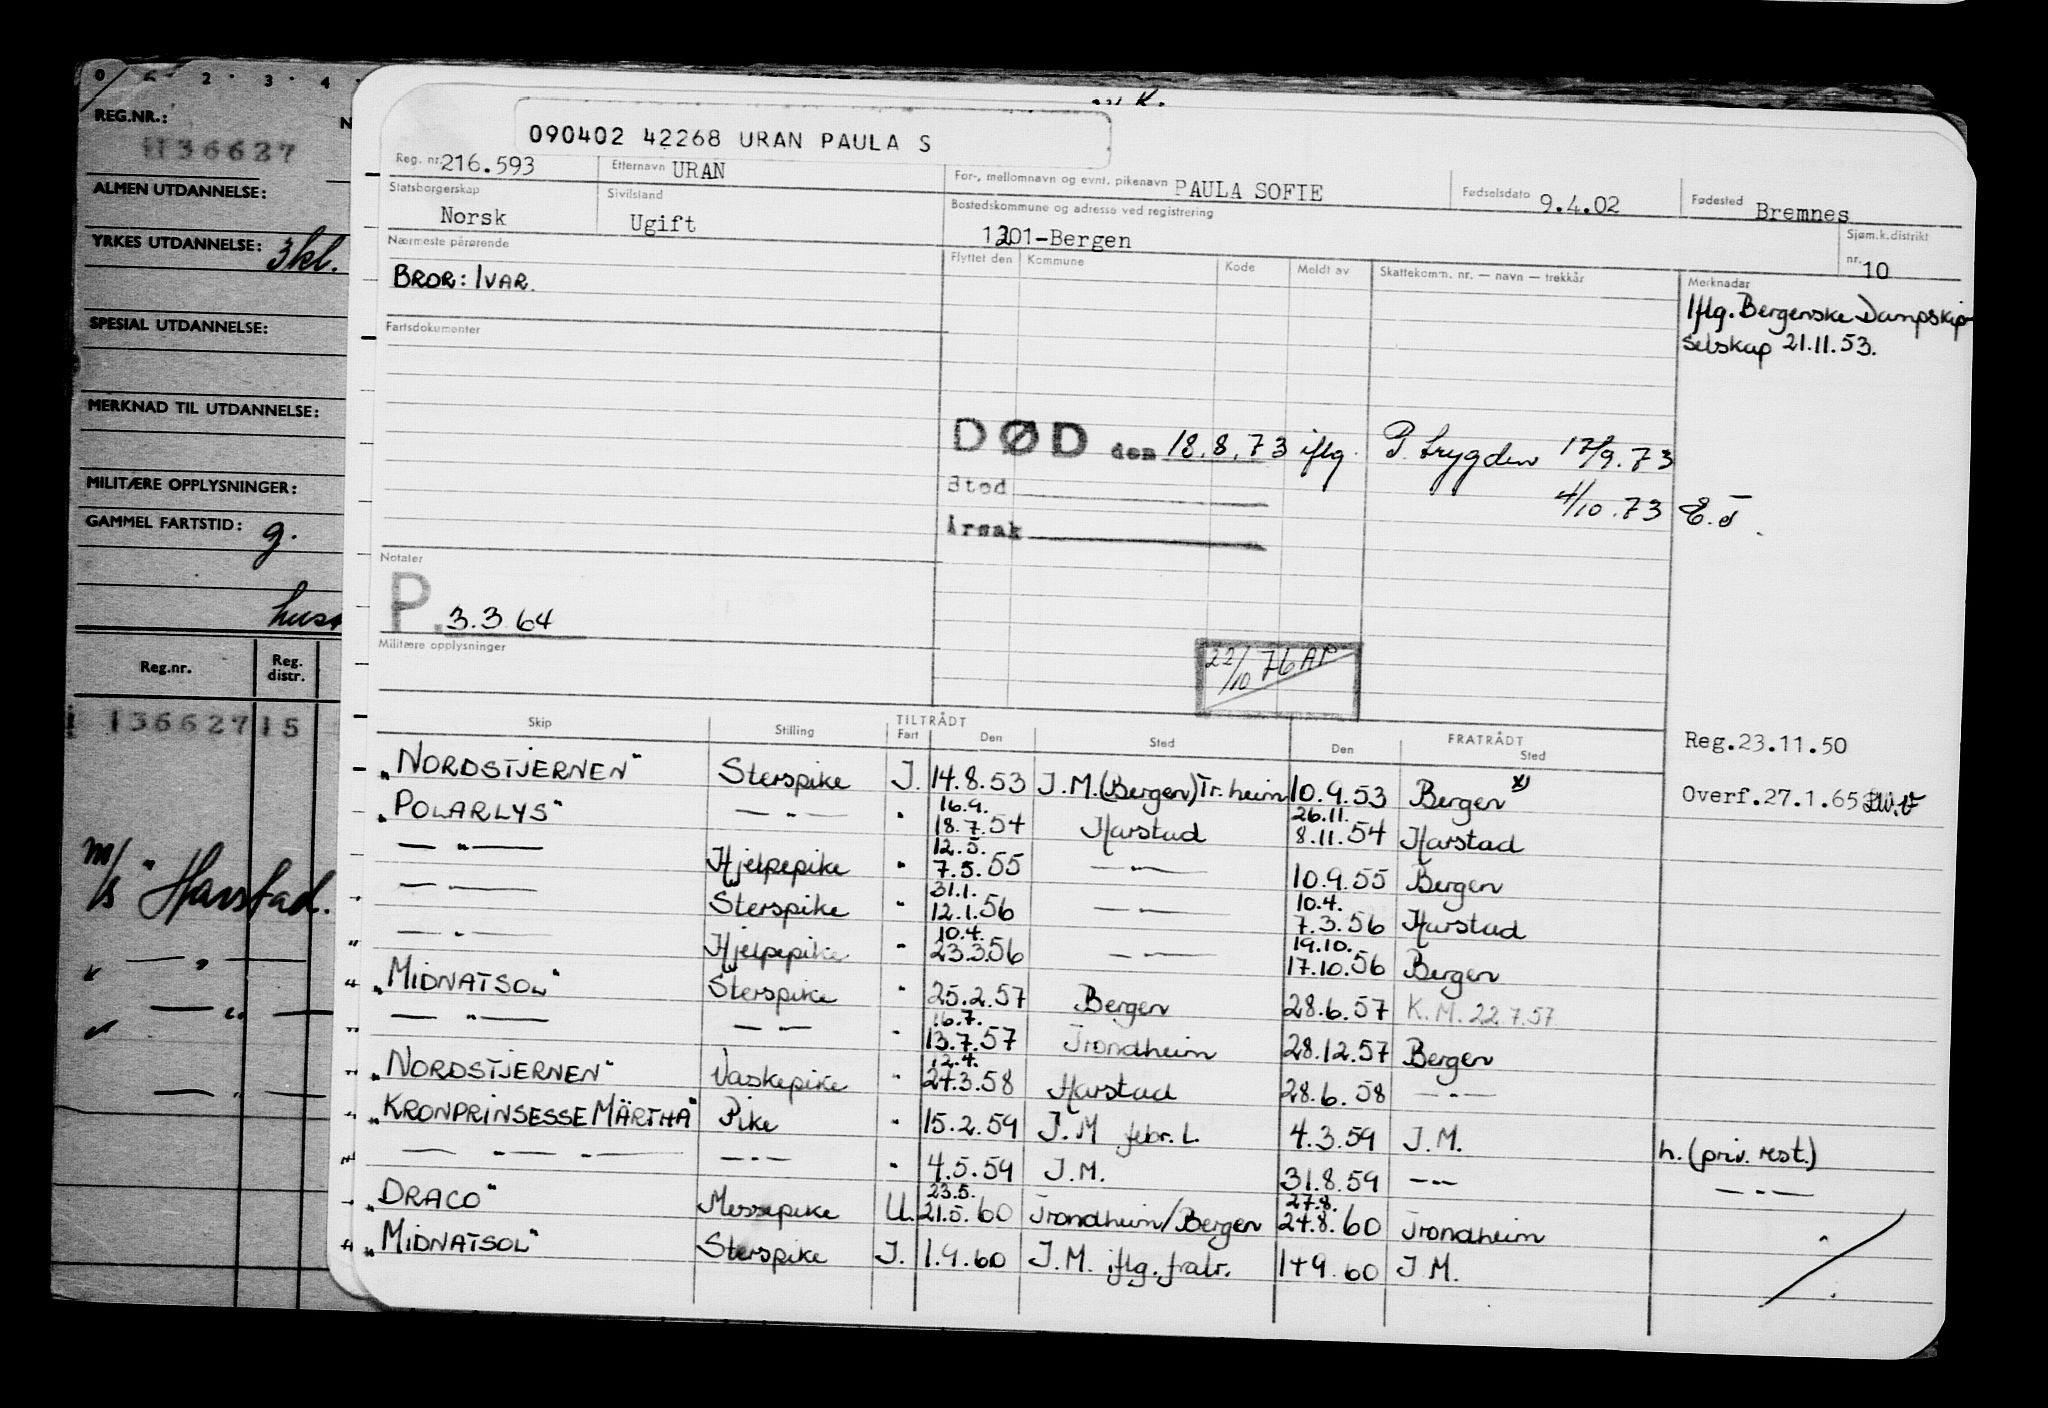 0 2 3 4
REG.NR.:
136627
ALMEN UTDANNELSE:
YRKES UTDANNELSE: 3kl.
SPESIAL UTDANNELSE:
MERKNAD TIL UTDANNELSE:
MILITÆRE OPPLYSNINGER:
GAMMEL FARTSTID: g.
Reg.nr. Reg. distr.
136627 15
m/s "Harstad.
090402 42268 URAN PAULA S
Reg. nr. 216.593 Etternavn URAN For-, mellomnavn og evnt. pikenavn PAULA SOFIE Fødselsdato 9.4.02 Fødested Bremnes
Statsborgerskap Norsk Sivilstand Ugift Bostedskommune og adresse ved registrering 1201-Bergen Sjøm.k.distrikt nr. 10
Nærmeste pårørende Flyttet den Kommune Kode Meldt av Skattekomm. nr. — navn — trekkår Merknader
BROR: IVAR.
Iflg. Bergenske Dampskip-
selskap 21.11.53.
Fartsdokumenter
DØD den 18.8.73 iflg. P. trygden 17/9.73
Sted 4/10.73 E.T.
Årsak
Notater
P. 3.3.64
Militære opplysninger
22/10 76 AP
Reg.23.11.50
Overf.27.1.65
Skip Stilling TILTRÅDT Fart Den Sted FRATRÅDT Den Sted
"NORDSTJERNEN" Sterspike J. 14.8.53 J.M.(Bergen)Tr.heim 10.9.53 Bergen x)
"POLARLYS" — " — " 16.9. 18.7.54 Harstad 26.11. 8.11.54 Harstad
— " — Hjelpepike " 12.5. 7.5.55 — " — 10.9.55 Bergen
— " — Sterspike " 31.1. 12.1.56 — " — 10.4. 7.3.56 Harstad
— " — Hjelpepike " 10.4. 23.3.56 — " — 19.10. 17.10.56 Bergen
"MIDNATSOL" Sterspike " 25.2.57 Bergen 28.6.57 K.M. 22.7.57
— " — — " — " 16.7. 13.7.57 Trondheim 28.12.57 Bergen
"NORDSTJERNEN" Vaskepike " 12.4. 24.3.58 Harstad 28.6.58 — " —
"KRONPRINSESSE MÄRTHA" Pike " 15.2.59 J.M. febr. l. 4.3.59 J.M. h. (priv. rest.)
— " — " — — " — " 4.5.59 J.M. 31.8.59 — " — — " —
"DRACO" Messepike U. 23.5. 21.5.60 Trondheim/Bergen 27.8. 24.8.60 Trondheim
"MIDNATSOL" Sterspike J. 1.9.60 J.M. iflg. fratr. 14.9.60 J.M.